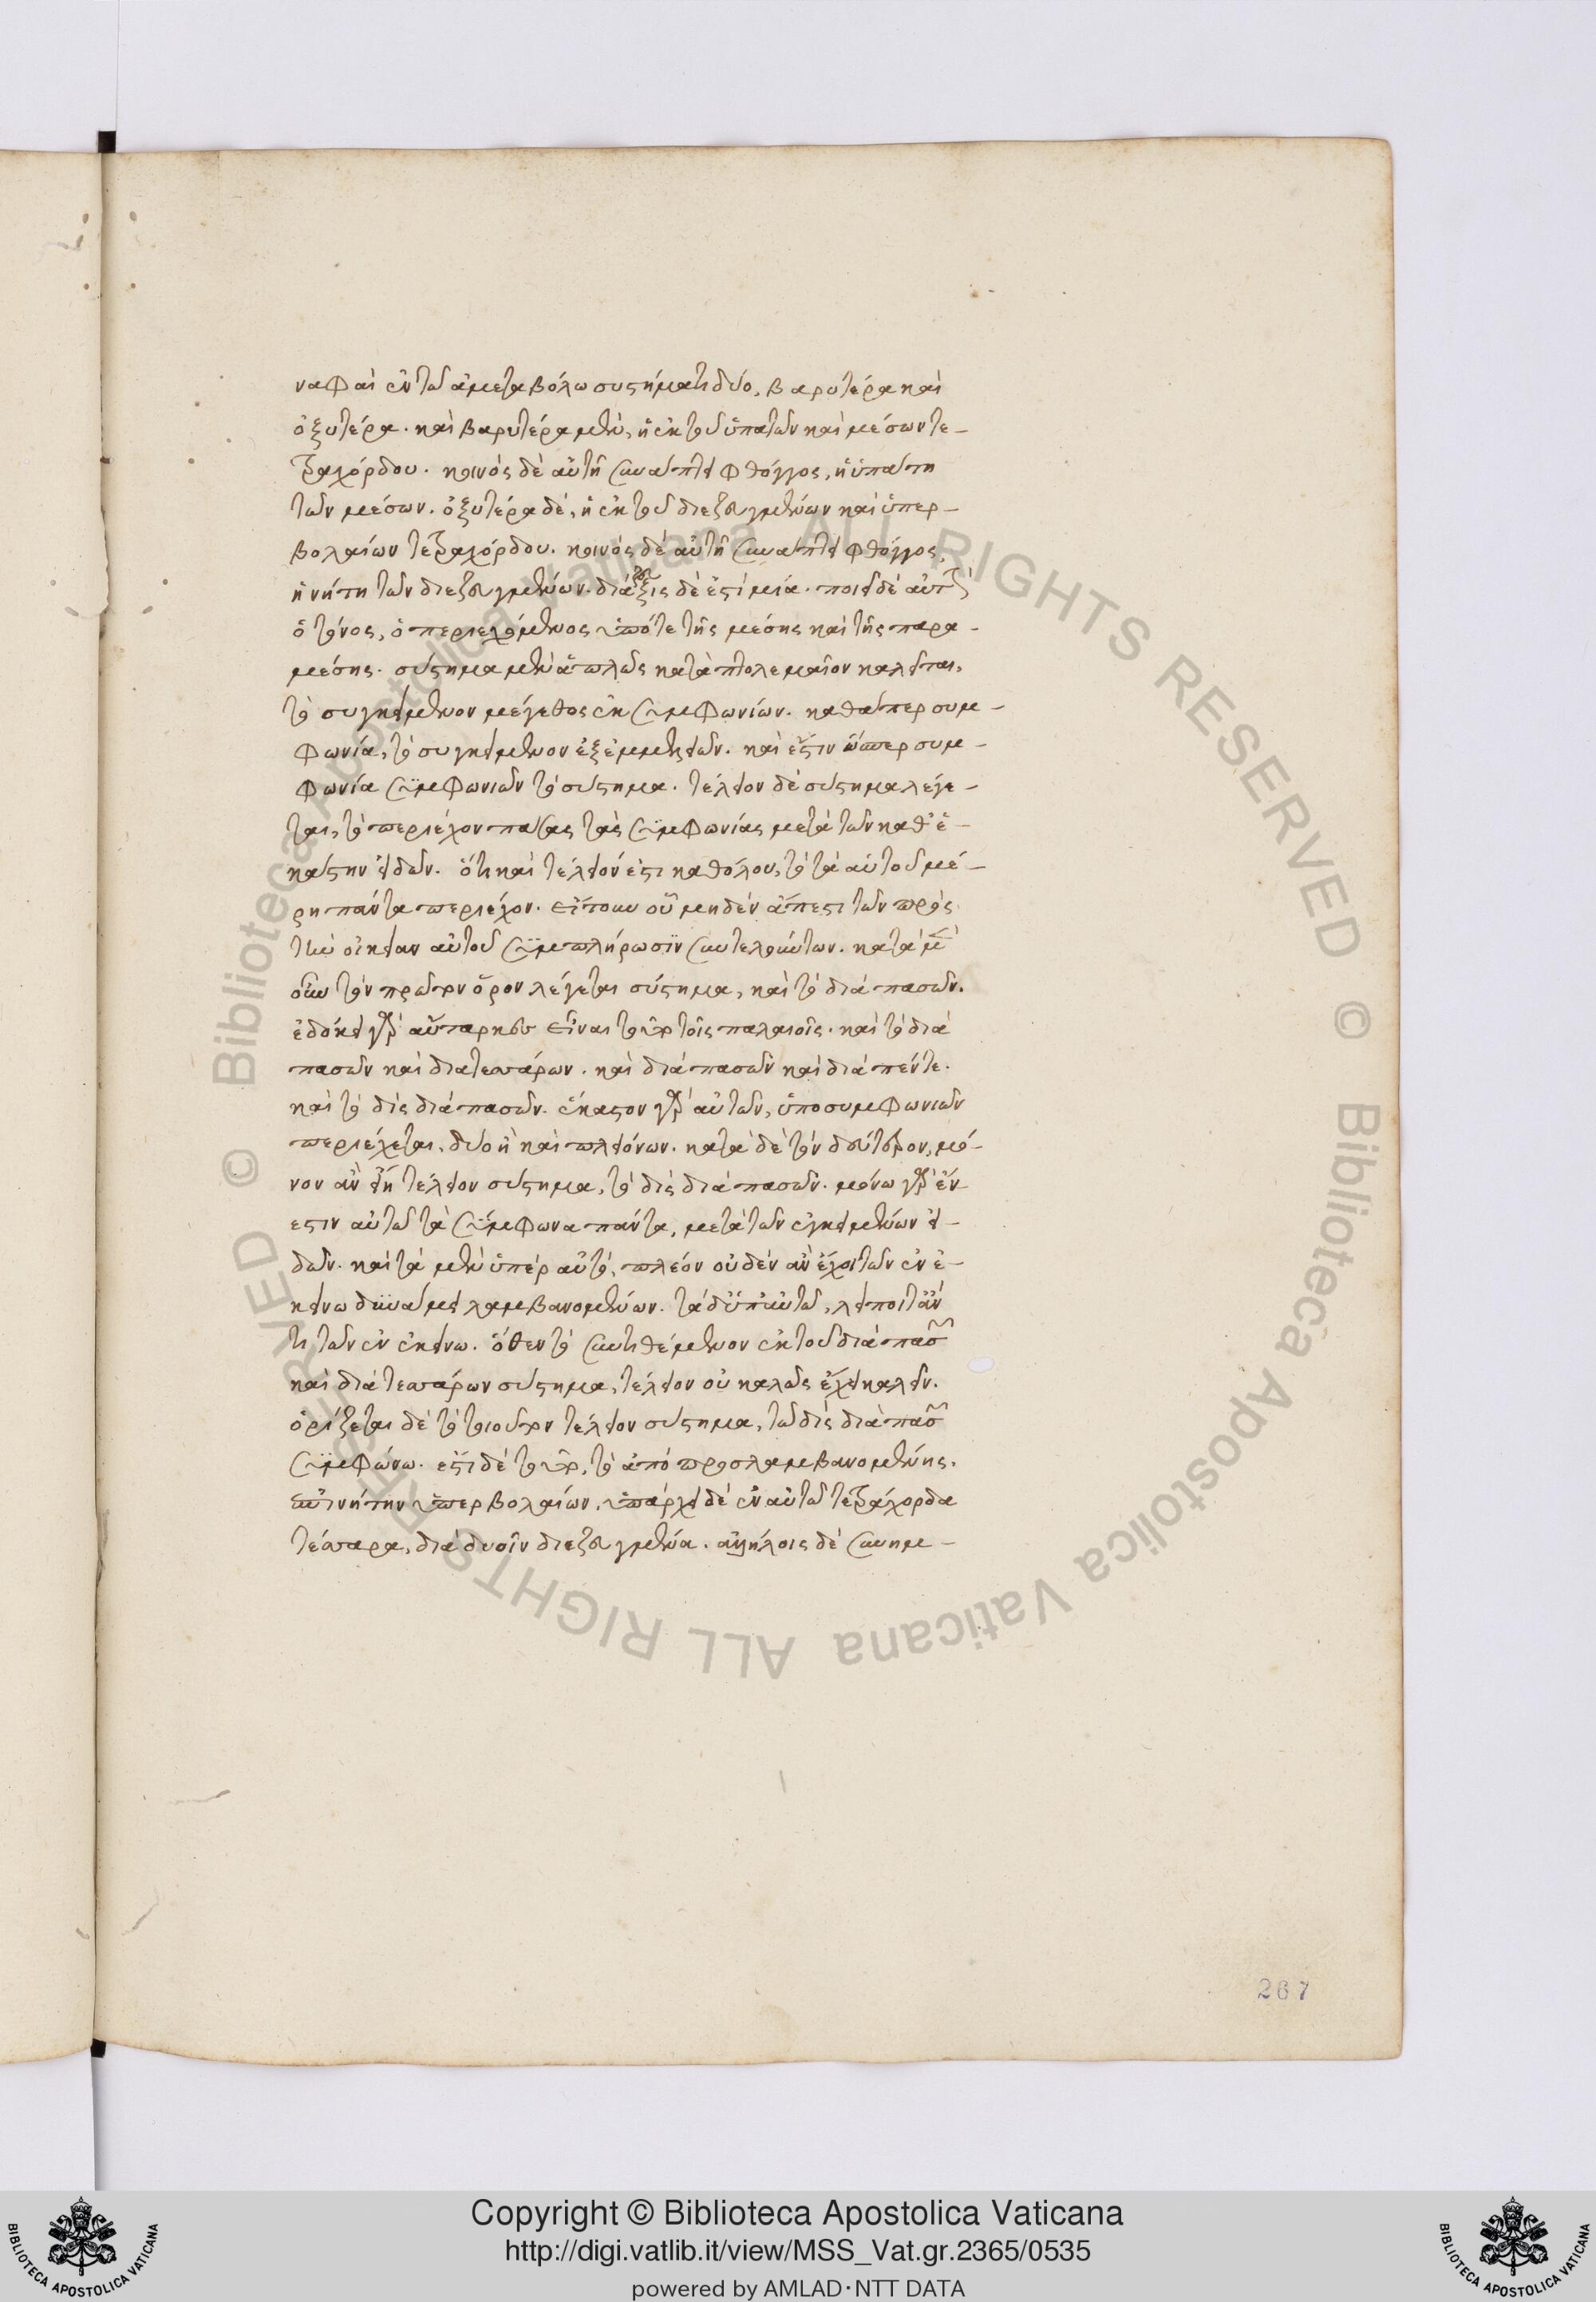 ναφαὶ ἐν τῶ ἀμεταβόλω συστήματι δύο, βαρυτέρα καὶ
ὀξυτέρα. καὶ βαρυτέρα μὲν, ἡ ἐκ τοῦ ὑπατῶν καὶ μέσων τε-
τραχόρδου. κοινὸς δὲ αὐτῆ συνάπτει φθόγγος, ἡ ὑπάτη
τῶν μέσων. ὀξυτέρα δὲ, ἡ ἐκ τοῦ διεζευγμένων καὶ ὑπερ-
βολαίων τετραχόρδου. κοινὸς δὲ αὐτῆ συνάπτει φθόγγος,
ἡ νήτη τῶν διεζευγμένων. διάζευξις δὲ ἐστὶ μία. ποιεῖ δὲ αὐτὴν
ὁ τόνος, ὁ περιεχόμενος ὑπό τε τῆς μέσης καὶ τῆς παρα-
μέσης. σύστημα μὲν ἁπλῶς κατὰ πτολεμαῖον καλεῖται,
τὸ συγκείμενον μέγεθος ἐκ συμφωνιῶν. καθάπερ συμ-
φωνία, τὸ συγκείμενον ἐξ ἐμμελειῶν. καὶ ἔστιν ὥσπερ συμ-
φωνία συμφωνιῶν τὸ σύστημα. τέλειον δὲ σύστημα λέγε-
ται, τὸ περιέχον πάσας τὰς συμφωνίας μετὰ τῶν καθ' ἑ-
κάστην εἰδῶν. ὅτι καὶ τέλειόν ἐστι καθόλου, τὸ τὰ αὑτοῦ μέ-
ρη πάντα περιέχον. εἴτουν οὗ μηδὲν ἄπεστι τῶν πρὸς
τὴν οἰκείαν αὐτοῦ συμπλήρωσιν συντελούντων. κατὰ μὲν
οὖν τὸν πρῶτον ὅρον λέγεται σύστημα, καὶ τὸ διὰ πασῶν.
ἐδόκει γὰρ αὔταρκες εἶναι τοῦτο τοῖς παλαιοῖς. καὶ τὸ διὰ
πασῶν καὶ διατεσσάρων. καὶ διὰ πασῶν καὶ διὰ πέντε.
καὶ τὸ δὶς διὰ πασῶν. ἕκαστον γὰρ αὐτῶν, ὑπὸ συμφωνιῶν
περιέχεται, δύο ἢ καὶ πλειόνων. κατὰ δὲ τὸν δεύτερον, μό-
νον ἂν εἴη τέλειον σύστημα, τὸ δὶς διὰ πασῶν. μόνω γὰρ ἔν-
εστιν αὐτῶ τὰ σύμφωνα πάντα, μετὰ τῶν ἐγκειμένων εἰ-
δῶν. καὶ τὰ μὲν ὑπὲρ αὐτὸ, πλέον οὐδὲν ἂν ἔχοι τῶν ἐν ἐ-
κείνω δυνάμει λαμβανομένων. τὰ δ' ὑπ' αὐτῶ, λείποιτ' ἄν
τι τῶν ἐν ἐκείνω. ὅθεν τὸ συντιθέμενον ἐκ τοῦ διὰ πασῶν
καὶ διὰ τεσσάρων σύστημα, τέλειον οὐ καλῶς ἔχει καλεῖν.
ὁρίζεται δὲ τὸ τοιοῦτον τέλειον σύστημα, τῶ δὶς διὰ πασῶν
συμφώνω. ἔστι δὲ τοῦτο, τὸ ἀπὸ προσλαμβανομένης,
ἐπὶ νήτην ὑπερβολαίων. ὑπάρχει δὲ ἐν αὐτῶ τετράχορδα
τέσσαρα, διὰ δυοῖν διεζευγμένα. ἀλλήλοις δὲ συνημ-
267
Copyright © Biblioteca Apostolica Vaticana
http://digi.vatlib.it/view/MSS_Vat.gr.2365/0535
powered by AMLAD·NTT DATA